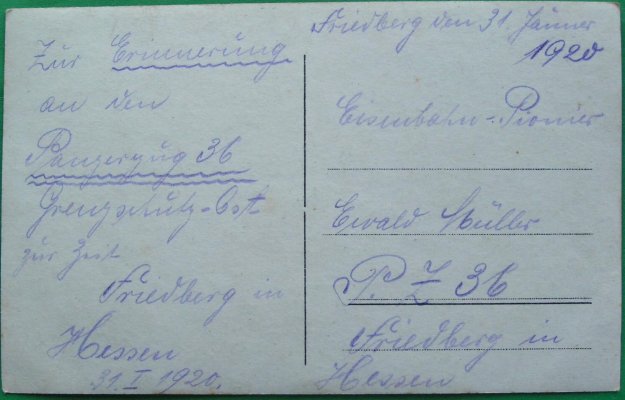 Zur Erinnerung
an den
Panzerzug 36
Grenzschutz-Ost
zur Zeit
Friedberg in
Hessen
31.I 1920.
Friedberg den 31. Jänner
1920
Eisenbahn-Pionier
Ewald Müller
P. Z 36
Friedberg in
Hessen